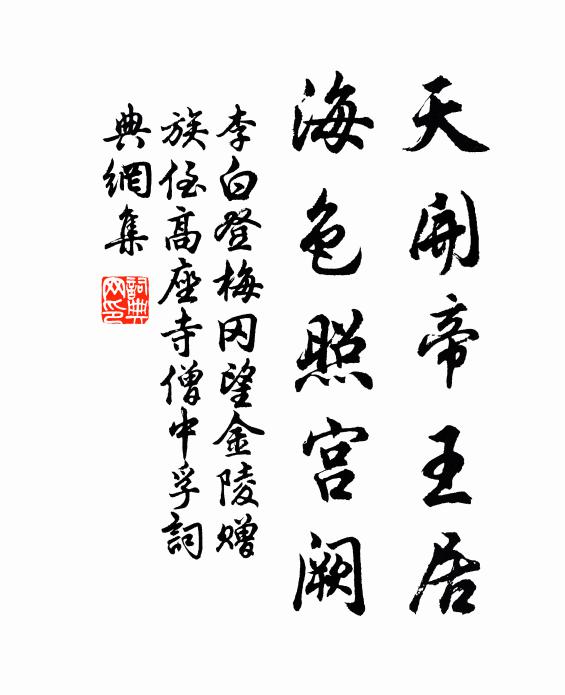 天開帝王居
海色照宫阙
李白登梅冈望金陵赠
族侄高座寺僧中孚詞
典網集
詞典网印